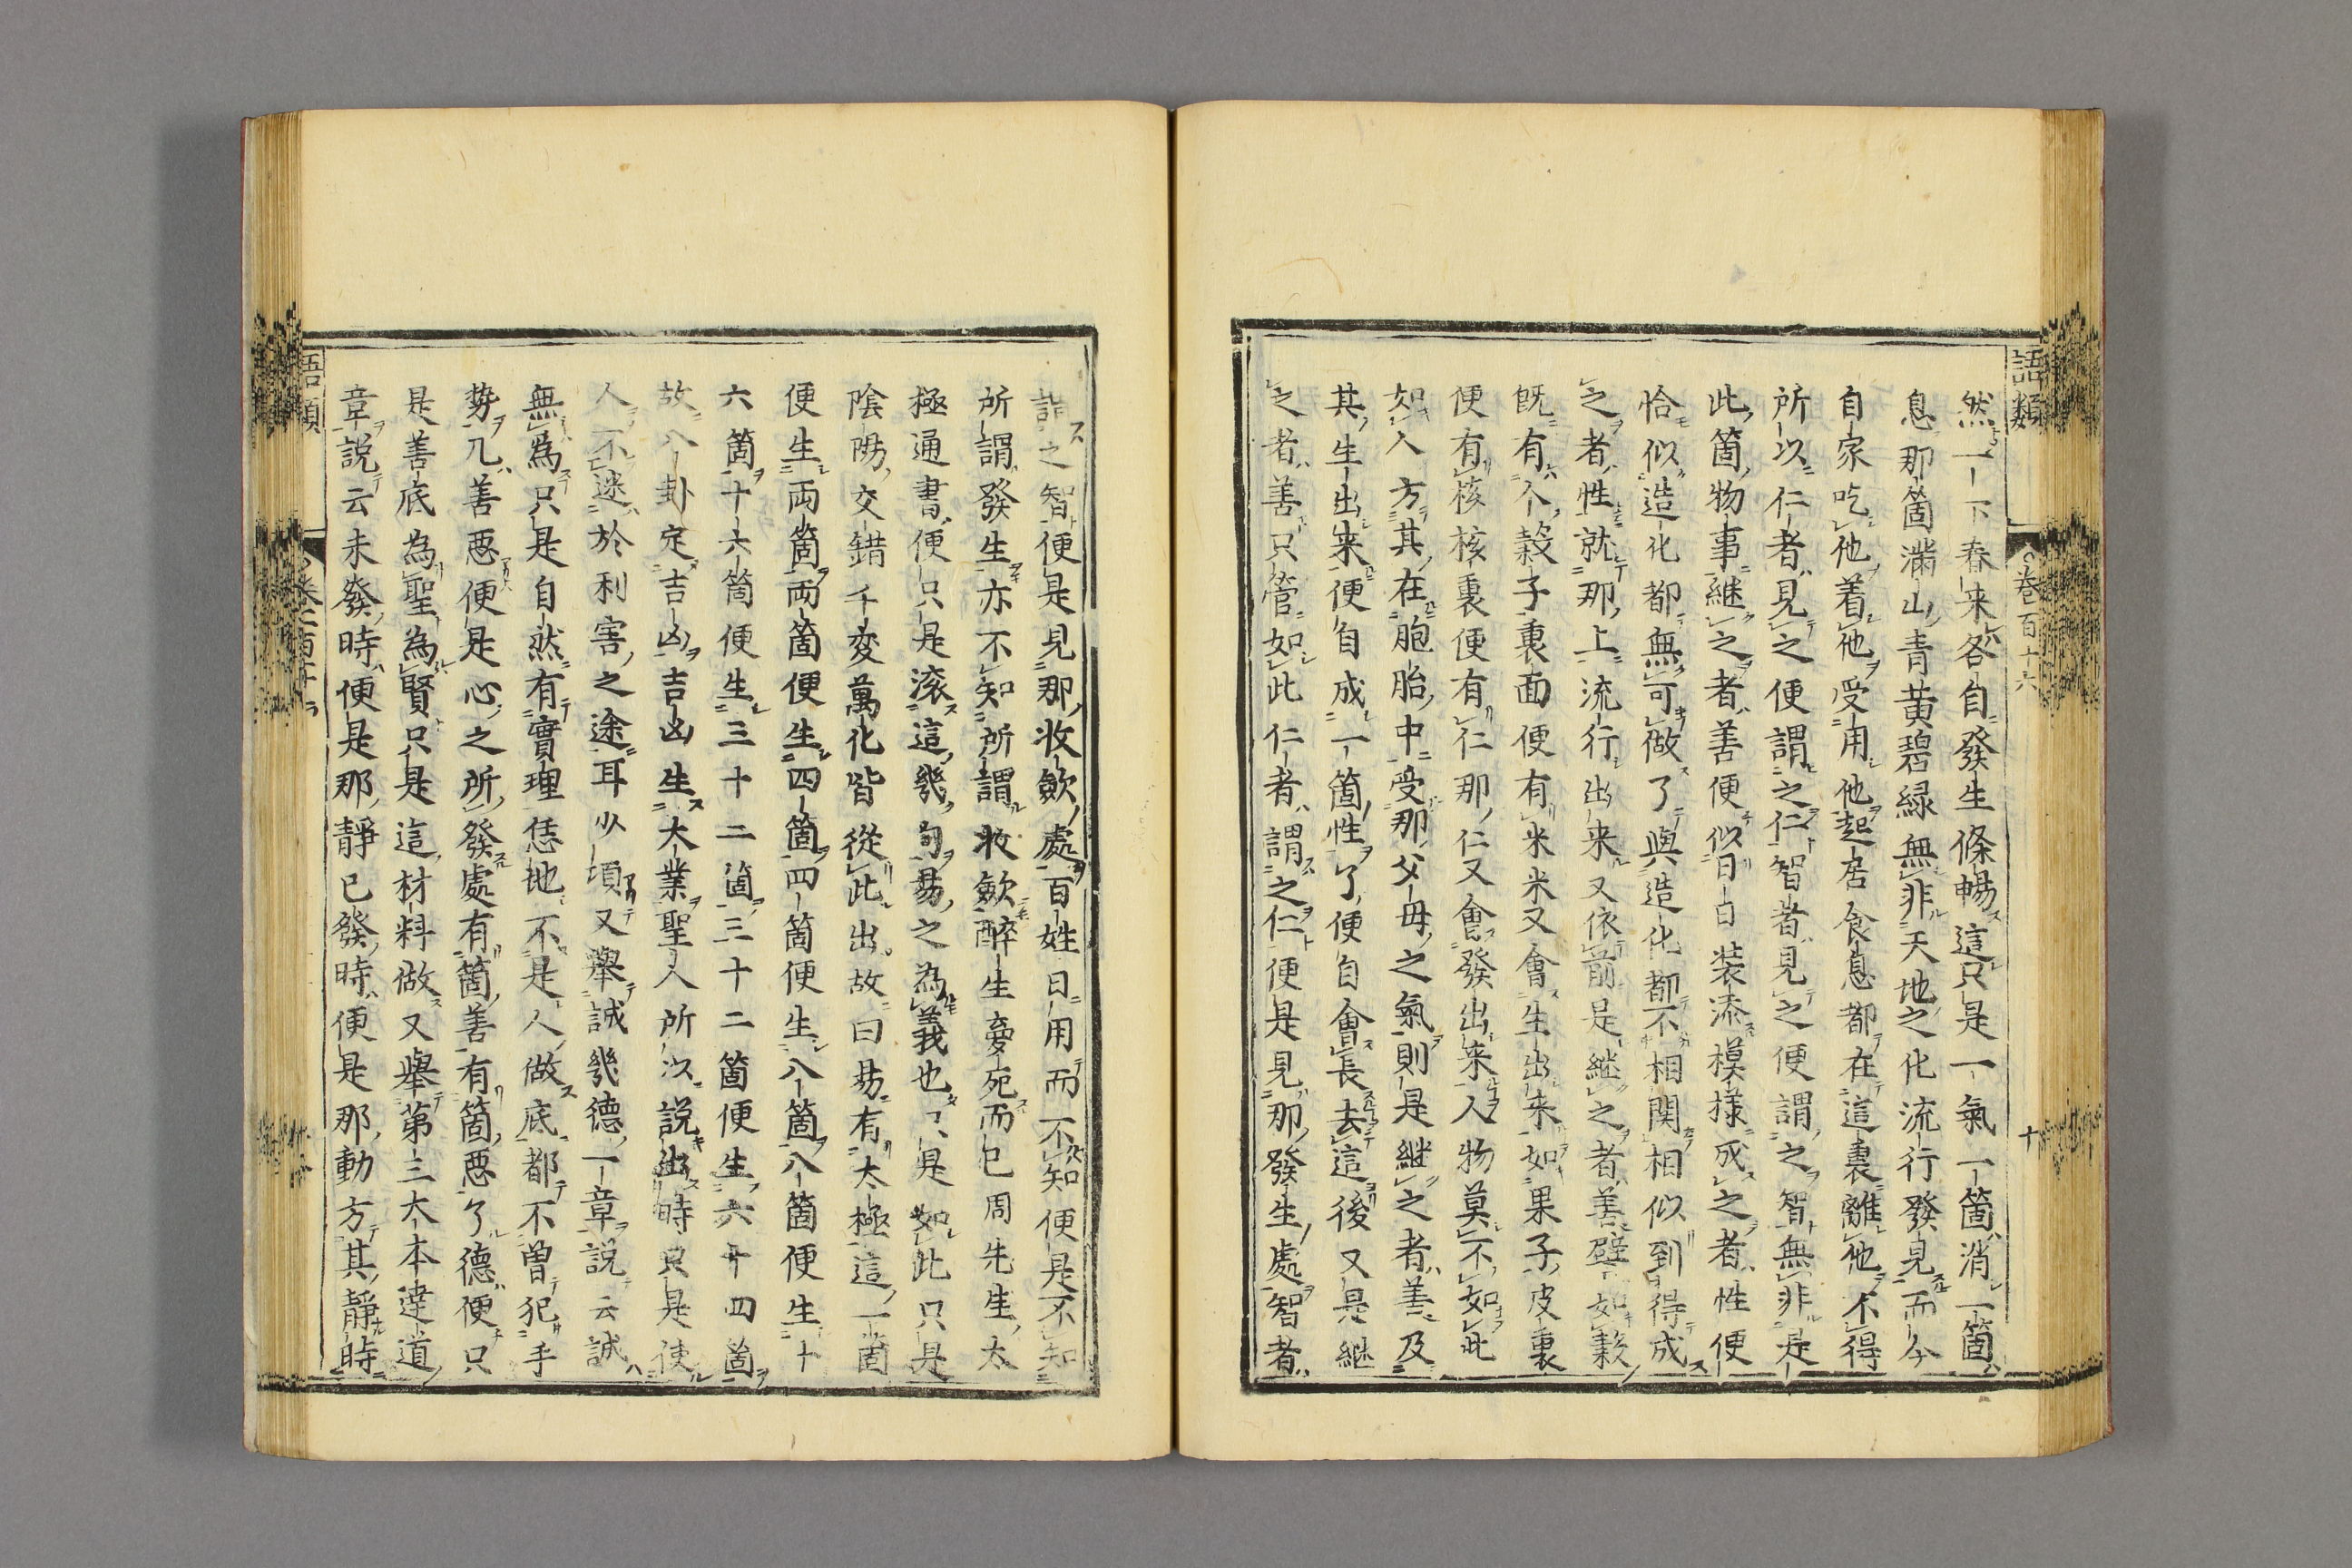 語類
卷百十六
十
然一下春来各自發生條暢這只是一氣一箇消一箇
息那箇滿山青黄碧緑無非天地之化流行發見而今
自家吃他着他受用他起居食息都在這裏離他不得
所以仁者見之便謂之仁智者見之便謂之智無非是
此箇物事継之者善便似日日装添模様成之者性便
恰似造化都無可做了與造化都不相関相似到得成
之者性就那上流行出来又依前是継之者善譬如穀
既有个穀子裏面便有米米又會生出来如果子皮裏
便有核核裏便有仁那仁又會發出来人物莫不如此
如人方其在胞胎中受那父母之氣則是継之者善及
其生出来便自成一箇性了便自會長去這後又是継
之者善只管如此仁者謂之仁便是見那發生處智者
謂之智便是見那收斂處百姓日用而不知便是不知
所謂發生亦不知所謂收斂醉生夢死而已周先生太
極通書便只是滚這幾句易之為義也只是如此只是
陰陽交錯千変萬化皆從此出故曰易有太極這一箇
便生両箇両箇便生四箇四箇便生八箇八箇便生十
六箇十六箇便生三十二箇三十二箇便生六十四箇
故八卦定吉凶吉凶生大業聖人所以説出時只是使
人不迷於利害之途耳少頃又舉誠幾德一章説云誠
無為只是自然有實理恁地不是人做底都不曽犯手
勢幾善悪便是心之所發處有箇善有箇悪了德便只
是善底為聖為賢只是這材料做又舉第三大本達道
章説云未發時便是那靜已發時便是那動方其靜時
語類